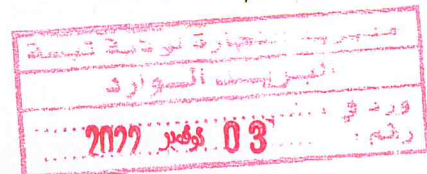 مديرية التجارة لولاية تبسة
البريد الوارد
ورد في
03 نوفمبر 2022
رقم :